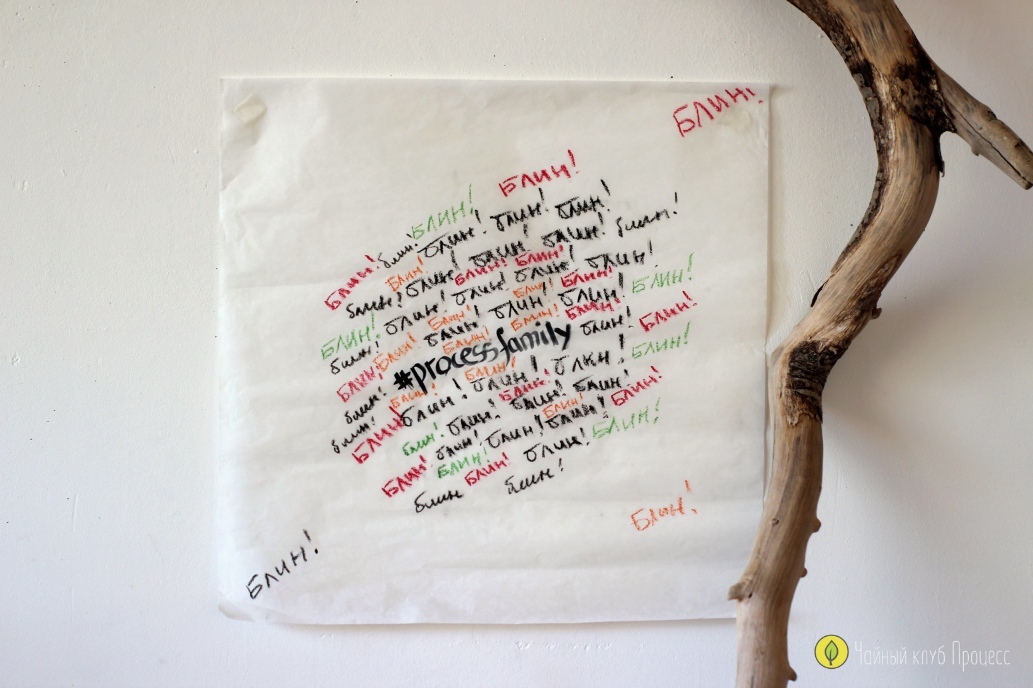 БЛИН!
БЛИН!
БЛИН!
блин! БЛИН! блин! блин!
БЛИН! БЛИН! блин! блин! блин! блин!
блин! блин! БЛИН! БЛИН! блин!
БЛИН! блин! БЛИН! блин! блин! БЛИН! БЛИН!
блин! БЛИН! блин! БЛИН! блин! БЛИН! блин! БЛИН!
БЛИН! БЛИН! #processfamily блин! БЛИН!
блин! БЛИН! блин! БЛИН! блин! БЛИН!
блин! БЛИН! блин! БЛИН! блин! БЛИН!
блин! блин! блин! БЛИН! блин! БЛИН!
БЛИН! БЛИН! БЛИН! блин!
блин блин!
БЛИН!
БЛИН!
Чайный клуб Процесс